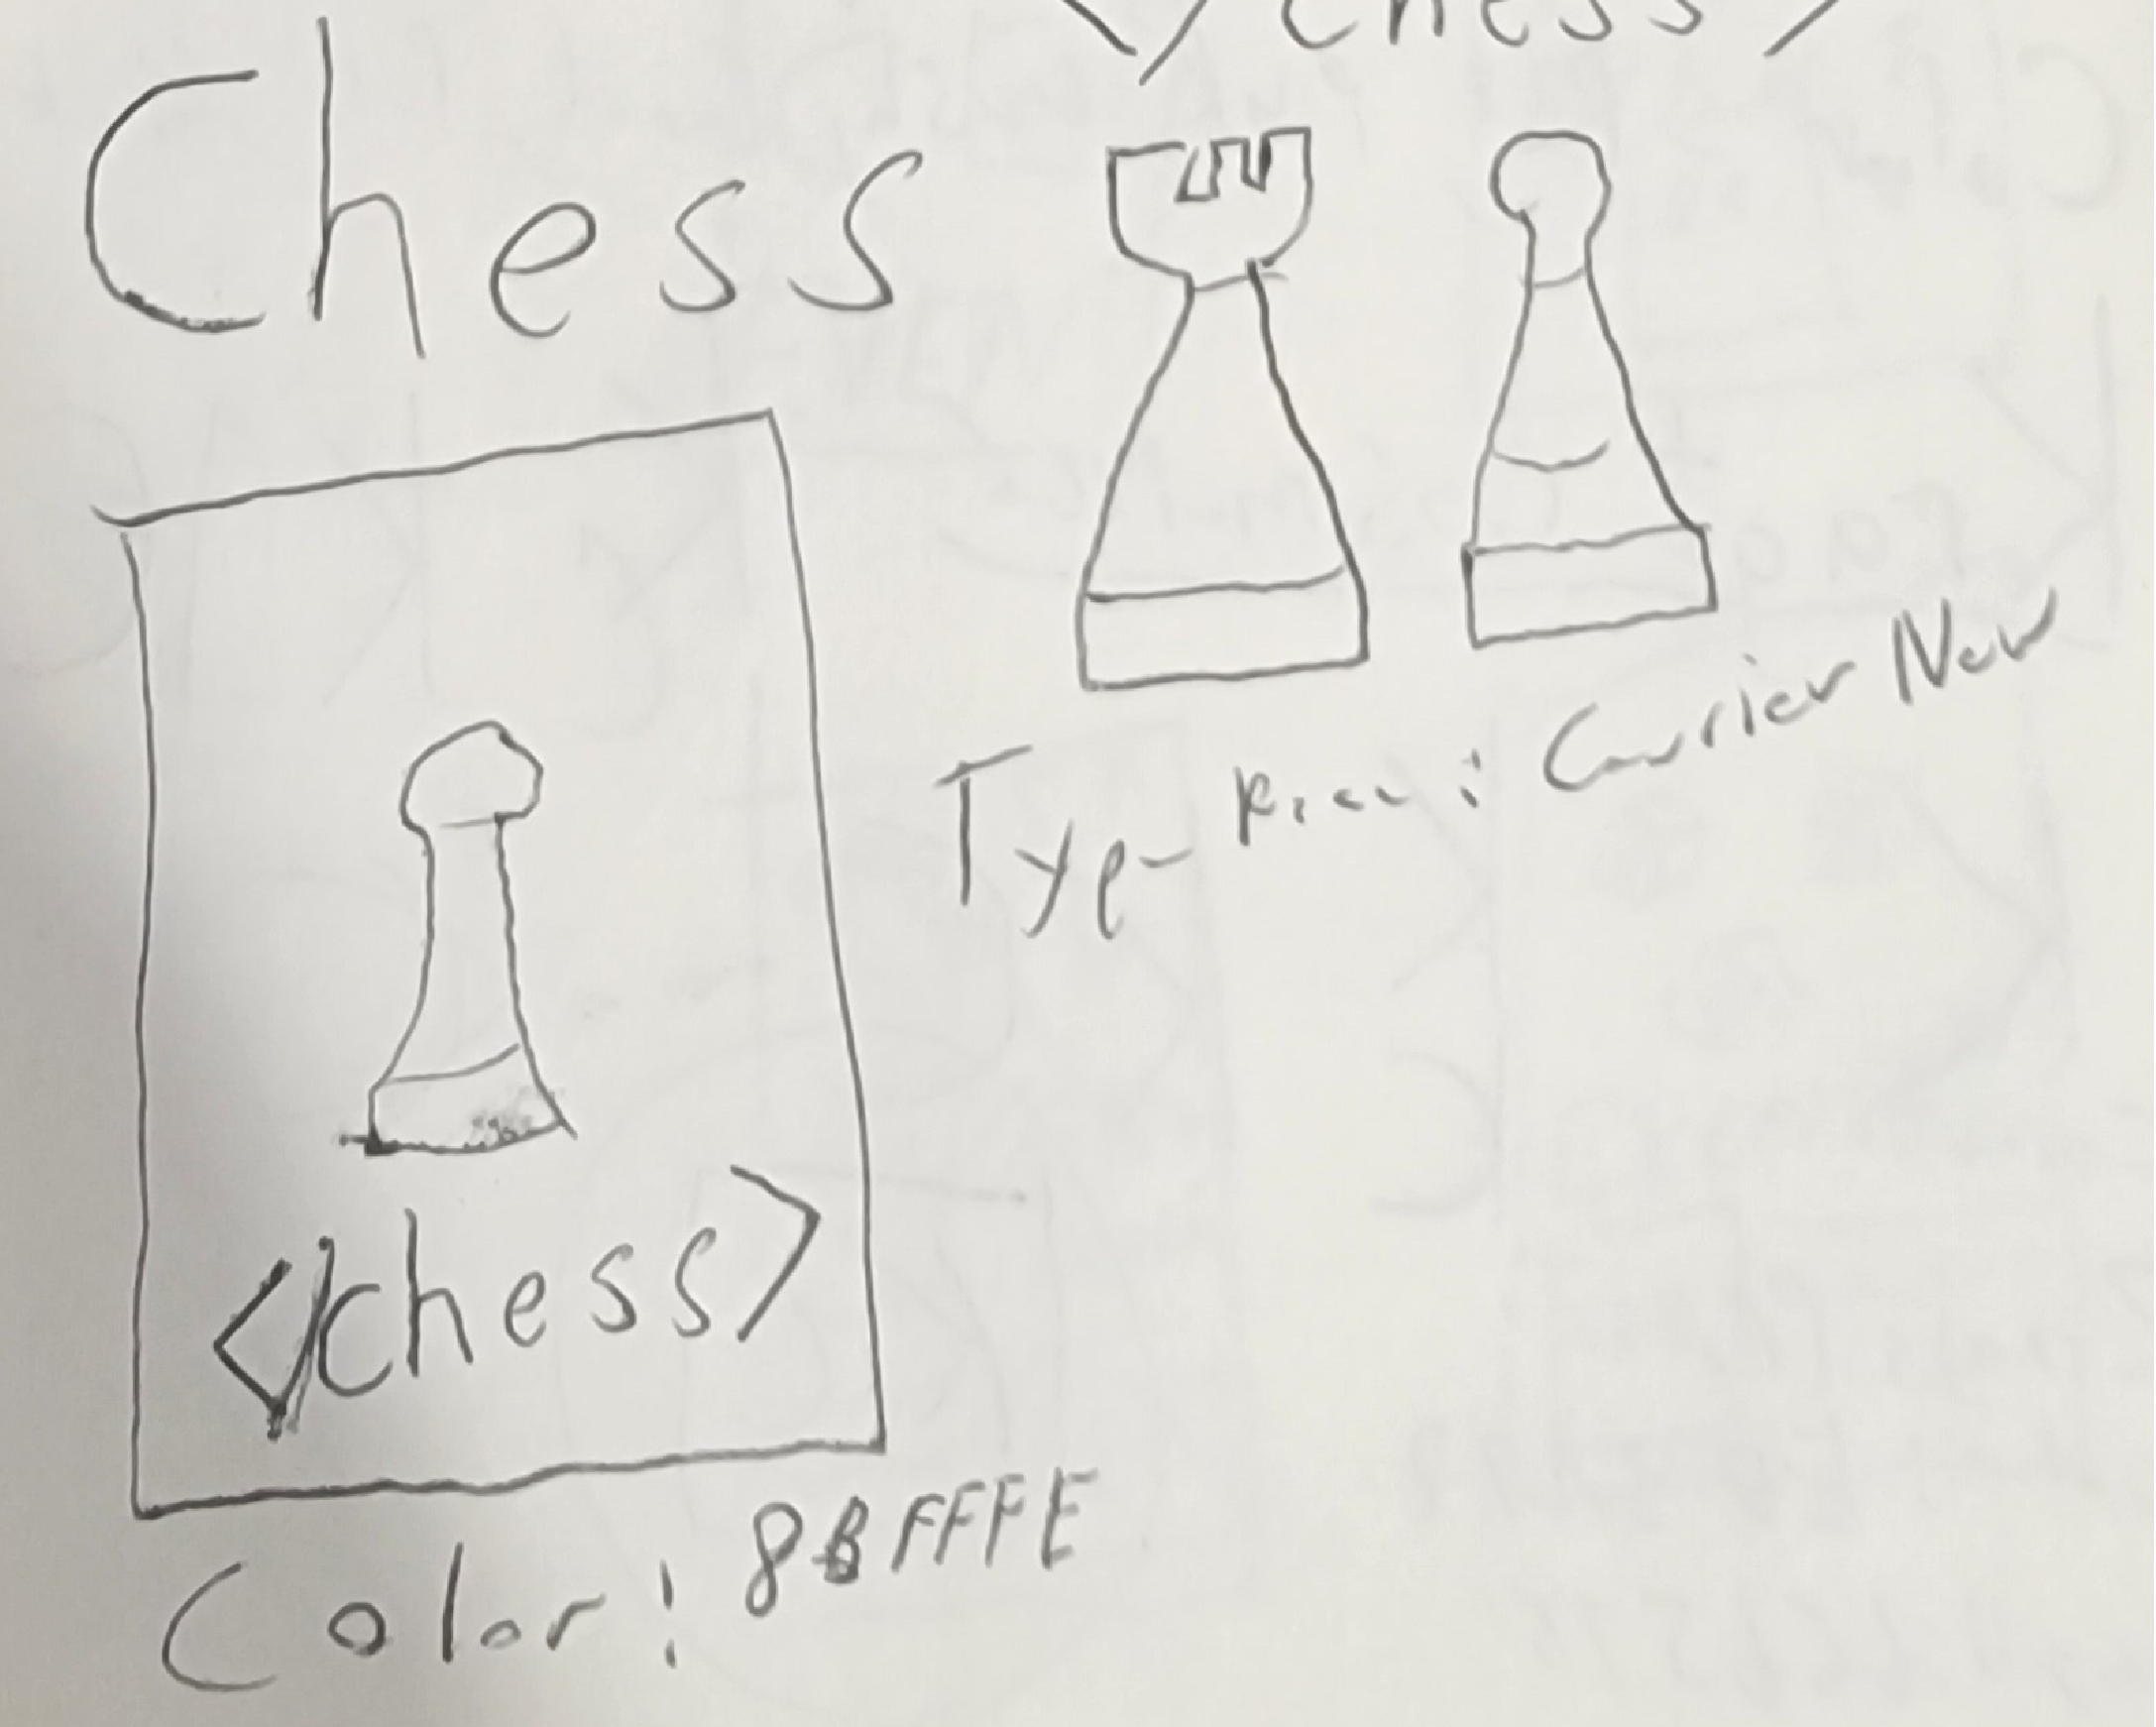 </chess>
Chess
Type- : Courier New
</chess>
Color: 8BFFFE